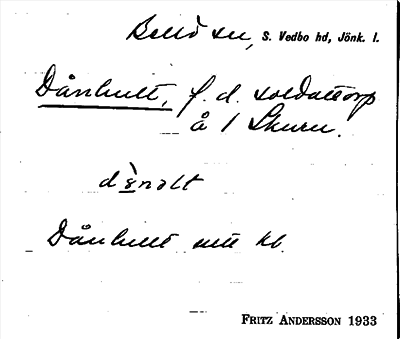 Bellö sn, S. Vedbo hd, Jönk. l.
Dånhult, f. d. soldattorp
å 1 Skuru.
dànalt
Dånhult sitt kb
Fritz Andersson 1933